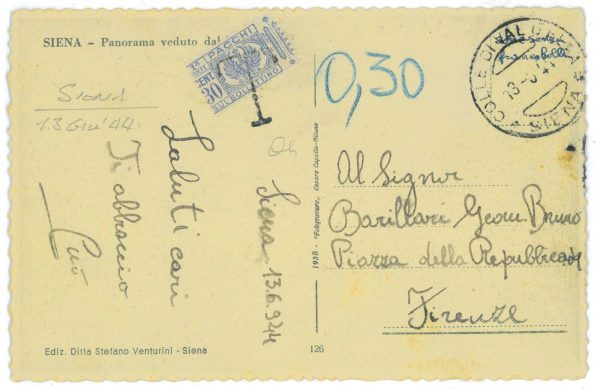 SIENA - Panorama veduto dal
PACCHI
CENT 30
SUL BOLLETTINO
T
0,30
COLLE DI VAL D'ELSA
SIENA
francobolli
Siena
13 Giu' 44.
Saluti cari
Ti abbraccio
Siena 13.6.944
Al Signor
Barillari Geom. Bruno
Piazza della Repubblica
Firenze
1938 - "Fotogravure", Cesare Capello - Milano
Ediz. Ditta Stefano Venturini - Siena
126